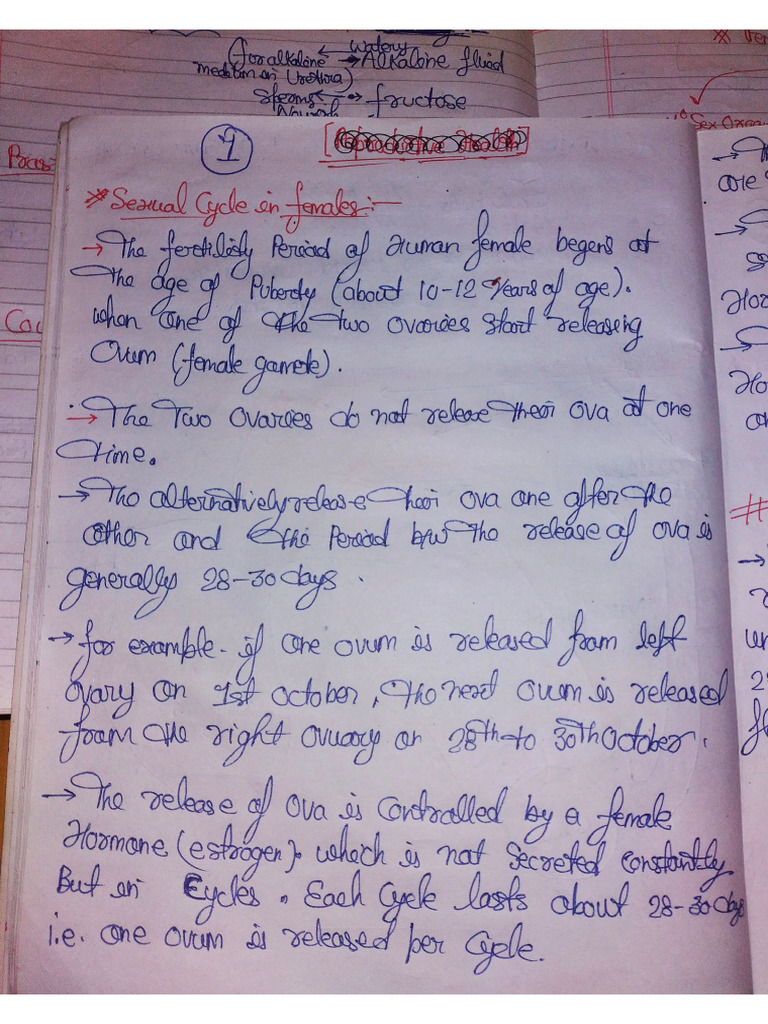 watery
(for alkaline → Alkaline fluid
medium in Urethra)
Sperms fructose
* Fem
Sex Orga
1
[Reproductive Health]
* Sexual Cycle in females:-
→ The fertility Period of Human female begens at
The age of Puberty (about 10-12 Years of age).
when one of The two ovaries start releasing
Ovum (female gamete).
→ The Two Ovaries do not release their ova at one
time.
→ The alternatively release their ova one after the
other and the Period b/w the release of ova is
generally 28-30 days.
→ for example - if one ovum is released from left
ovary on 1st october, the next ovum is released
from the right ovuary on 28th to 30th October.
→ The release of ova is controlled by a female
Hormone (estrogen). which is not secreted constantly
But in Cycles. Each Cycle lasts about 28-30 days
i.e. one ovum is released per Cycle.
are
Hor
Ho
#